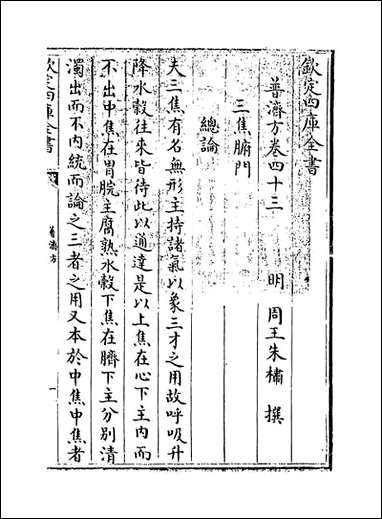 欽定四庫全書
普濟方卷四十三
明 周王朱橚 撰
三焦腑門
總論
夫三焦有名無形主持諸氣以象三才之用故呼吸升
降水榖往來皆待此以通達是以上焦在心下主内而
不出中焦在胃脘主腐熟水榖下焦在臍下主分别清
濁出而不内統而論之三者之用又本於中焦中焦者
欽定四庫全書
普濟方
一